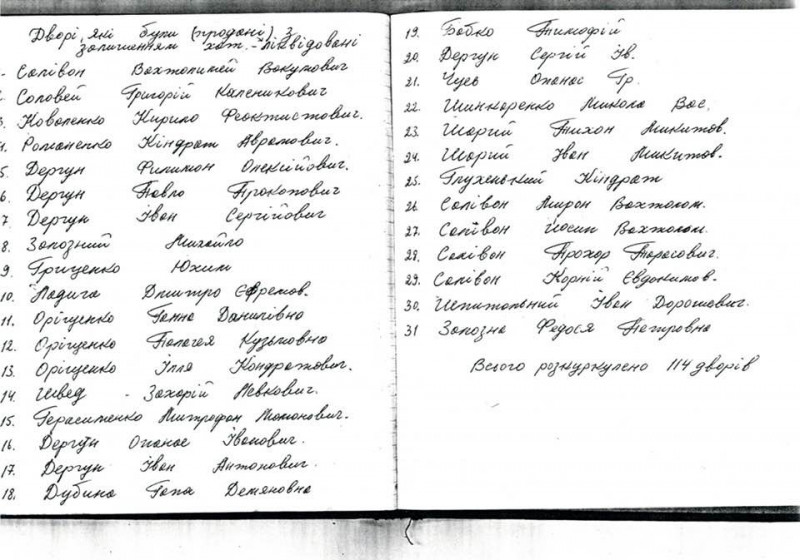 Дворі, які були (продані) з
залишенням хат. - ліквідовані
- Солівон Вахтолимей Вакумович
2. Соловей Григорій Каленикович
3. Коваленко Кирило Феоктистович.
4. Романенко Кіндрат Аврамович.
5. Дергун Филимон Олексійович.
6. Дергун Павло Прокопович
7. Дергун Іван Сергійович
8. Залозний Михайло
9. Гриценко Юхим
10. Ладига Дмитро Єфремов.
11. Оріщенко Ганна Данилівна
12. Оріщенко Палагея Кузьмовна
13. Оріщенко Ілля Кондратович.
14. Швед - Захарій Левкович.
15. Герасименко Митрофан Мамонович.
16. Дергун Опанас Іванович.
17. Дергун Іван Антонович.
18. Дубина Гапа Демяновна
19. Бабко Тимофій
20. Дергун Сергій Ів.
21. Чусь Опанас Гр.
22. Шинкаренко Микола Вас.
23. Шарий Тихон Микитов.
24. Шарий Іван Микитов.
25. Глухенький Кіндрат
26. Солівон Мирон Вахтолом.
27. Солівон Йосип Вахтолом.
28. Солівон Прохор Тарасович.
29. Солівон Корній Євдокимов.
30. Шпитальний Іван Дорошович.
31 Залозна Федося Петровна
Всього розкуркулено 114 дворів